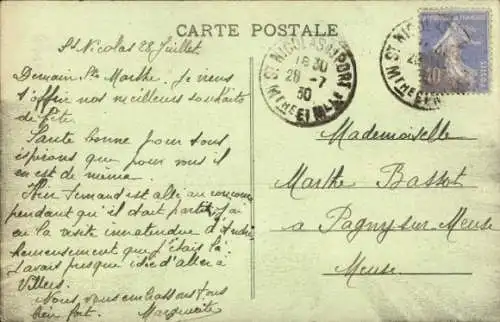 CARTE POSTALE
St Nicolas 28 Juillet
Demain Ste Marthe. Je viens
t'offrir nos meilleurs souhaits
de fête.
Santé bonne pour tous
espérons que pour vous il
en est de même.
Hier Fernand est allé au concours
pendant qu'il était parti j'ai
eu la visite inattendue d'André
heureusement que j'étais là
J'avais presque idée d'aller à
Villers.
Nous vous embrassons tous
bien fort. Marguerite
ST NICOLAS DU PORT
18 30
28 - 7
30
MTHE ET MLLE
ST NICOLAS
28
MTHE ET M
40
POSTES
Mademoiselle
Marthe Bassot
à Pagny-sur-Meuse
Meuse